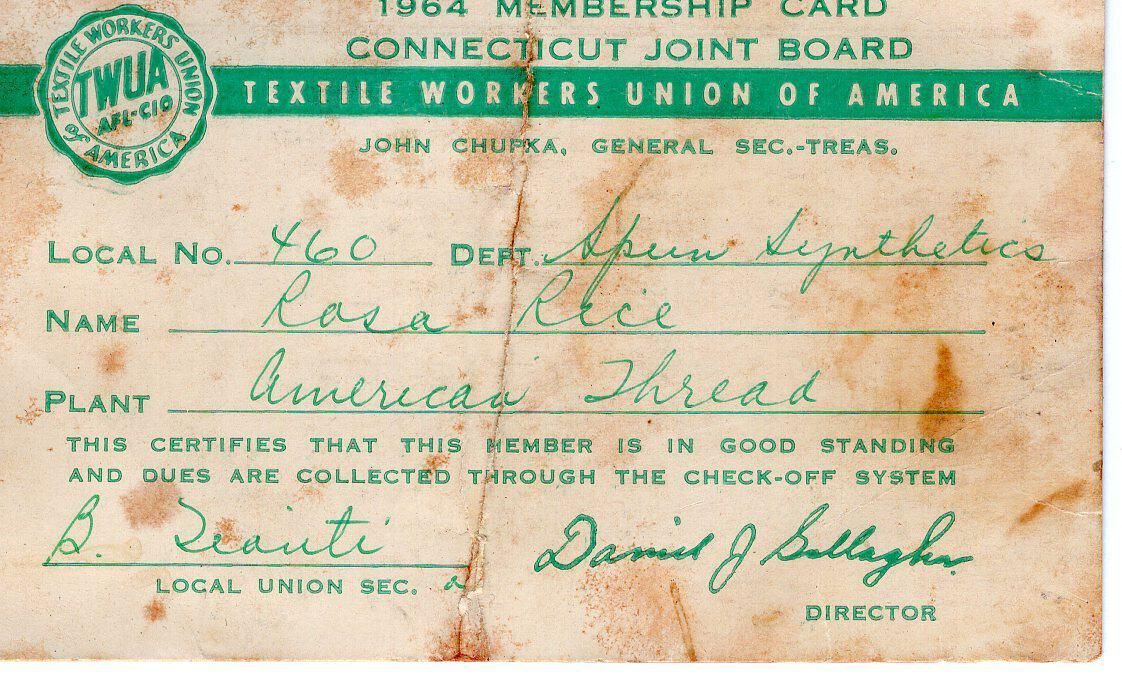 1964 MEMBERSHIP CARD
CONNECTICUT JOINT BOARD
TEXTILE WORKERS UNION OF AMERICA
TWUA
AFL-CIO
TEXTILE WORKERS UNION OF AMERICA
JOHN CHUPKA, GENERAL SEC.-TREAS.
LOCAL NO. 460 DEPT. Spun Synthetics
NAME Rosa Rice
PLANT American Thread
THIS CERTIFIES THAT THIS MEMBER IS IN GOOD STANDING
AND DUES ARE COLLECTED THROUGH THE CHECK-OFF SYSTEM
B. Daniel J Gallagher
LOCAL UNION SEC.
DIRECTOR